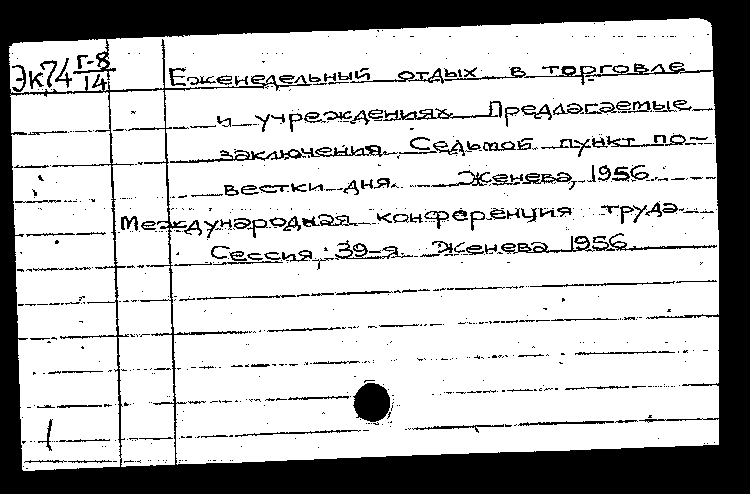 Эк74 Г-8/14
Еженедельный отдых в торговле
и учреждениях. Предлагаемые
заключения. Седьмой пункт по-
вестки дня. Женева, 1956.
Международная конференция труда.
Сессия, 39-я. Женева 1956.